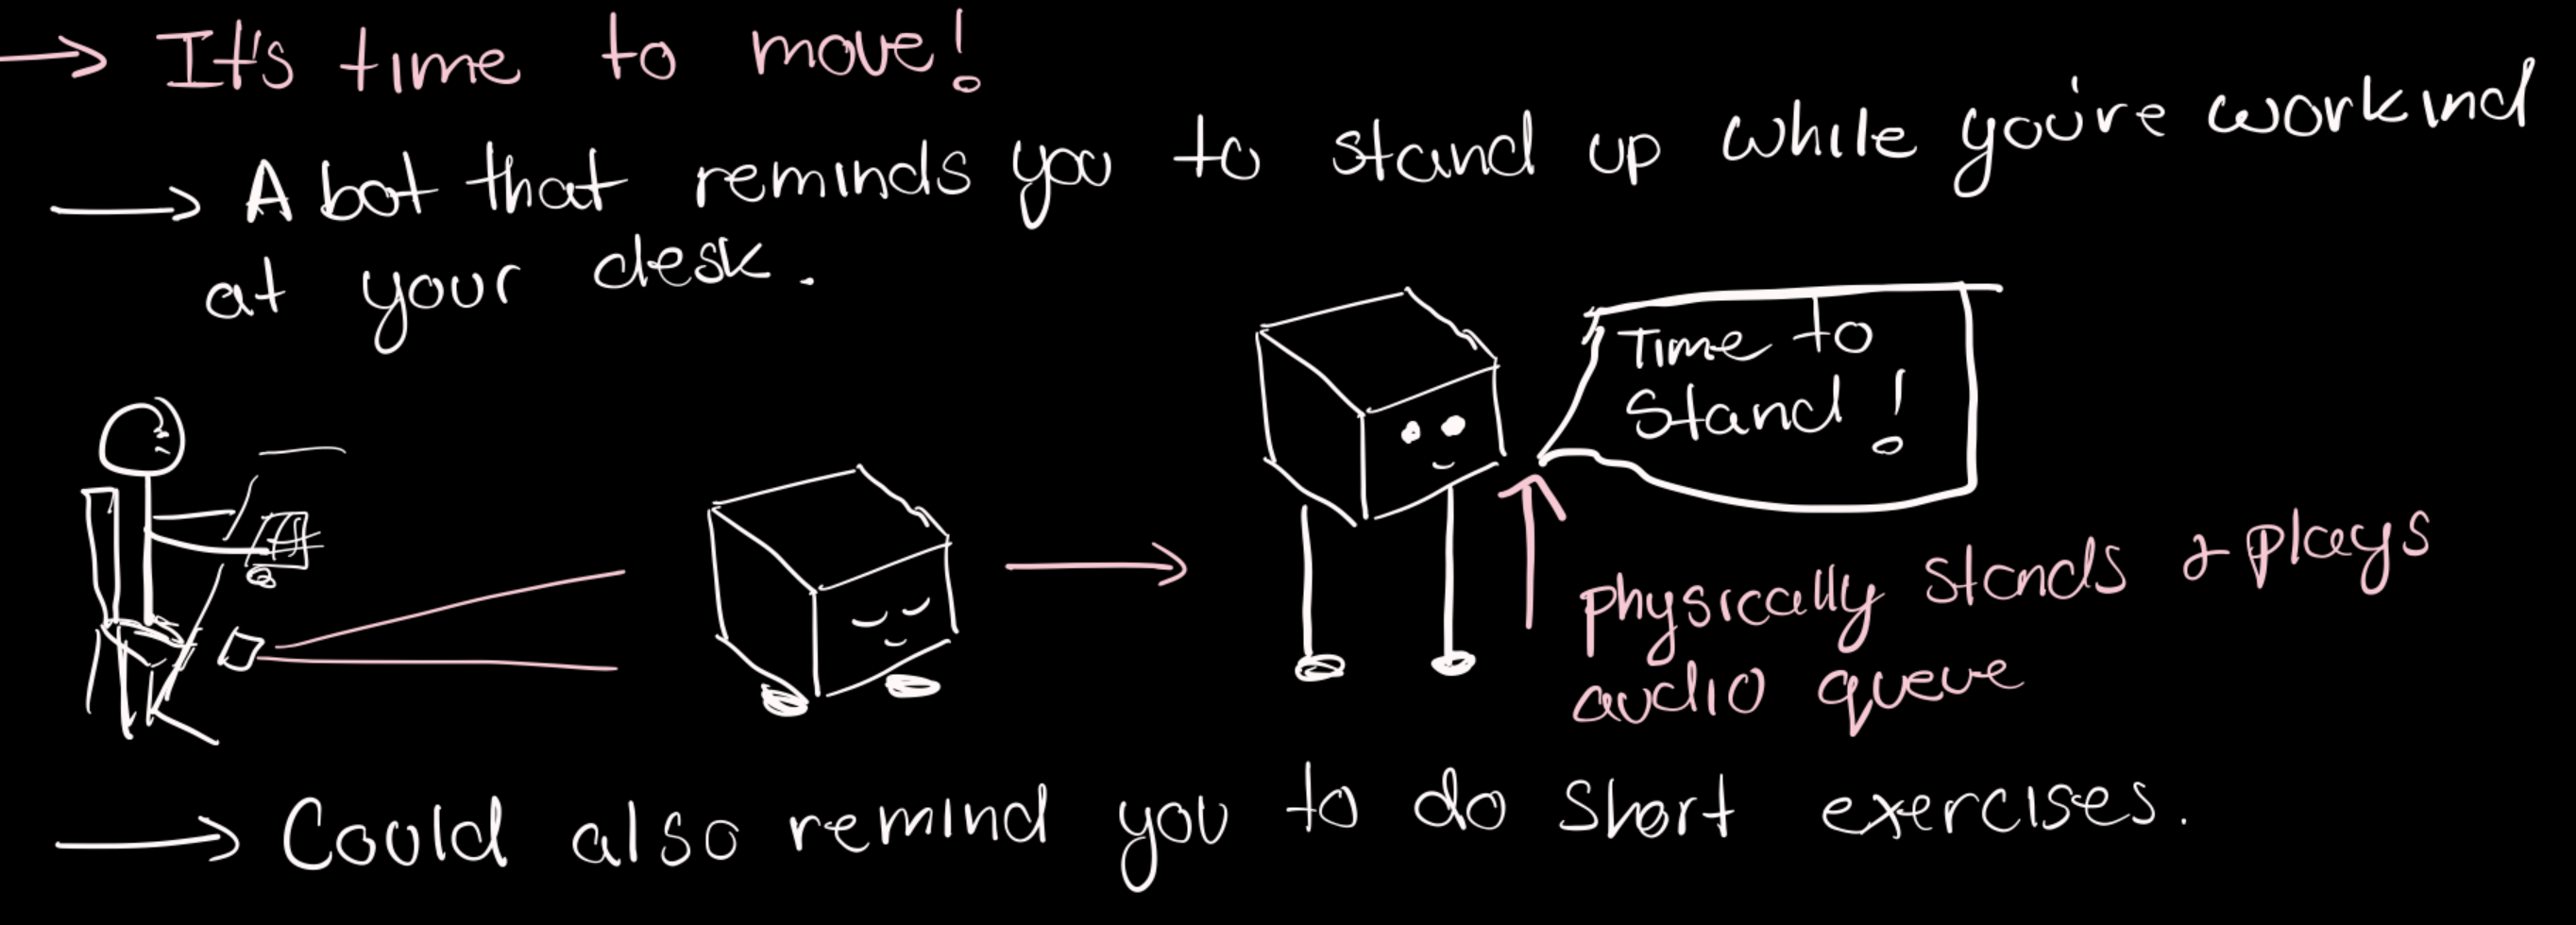 → It's time to move!
→ A bot that reminds you to stand up while you're workind
at your desk.
Time to
Stand!
physically stands & plays
audio queue
→ Could also remind you to do short exercises.